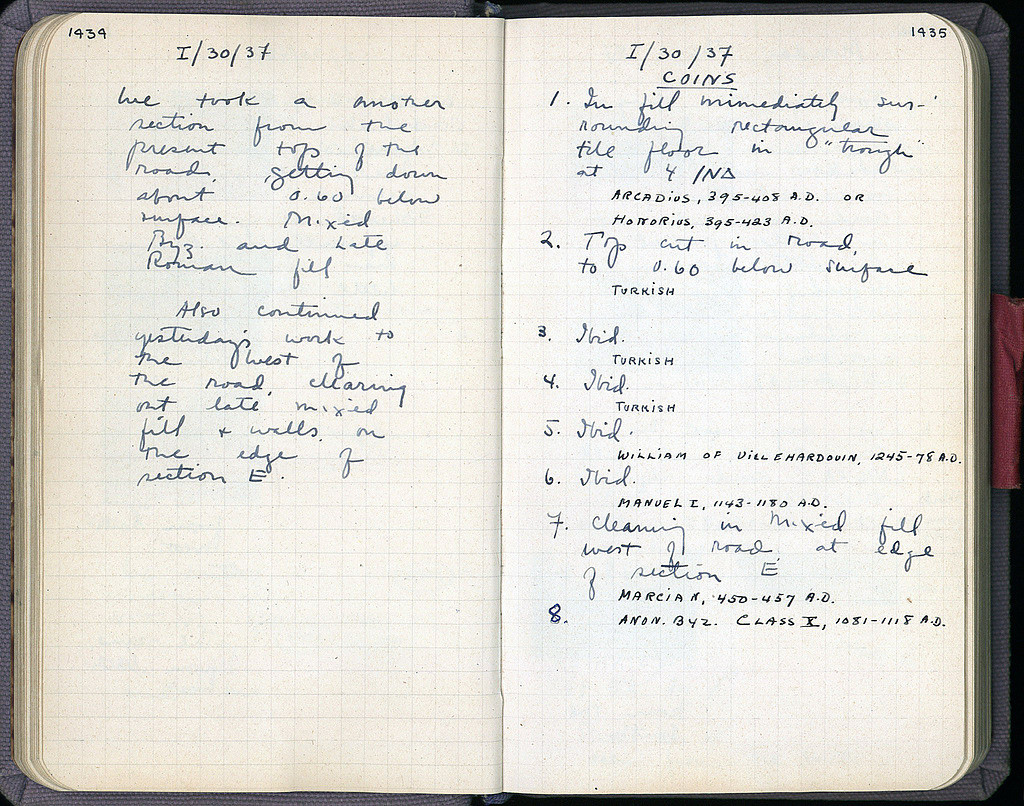 1434
I/30/37
We took a another
section from the
present top of the
road, getting down
about 0.60 below
surface. Mixed
Byz. and Late
Roman fill
Also continued
yesterday's work to
the West of
the road, clearing
out late mixed
fill + walls, on
the edge of
section E.
1435
I/30/37
COINS
1. In fill immediately sur-
rounding rectangular
tile floor in "trough"
at 4/NΔ
ARCADIUS, 395-408 A.D. OR
HONORIUS, 395-423 A.D.
2. Top cut in road,
to 0.60 below surface
TURKISH
3. Ibid.
TURKISH
4. Ibid.
TURKISH
5. Ibid.
WILLIAM OF VILLEHARDOUIN, 1245-78 A.D.
6. Ibid.
MANUEL I, 1143-1180 A.D.
7. Clearing in mixed fill
west of road, at edge
of section E
MARCIAN, 450-457 A.D.
8. ANON. BYZ. CLASS X, 1081-1118 A.D.